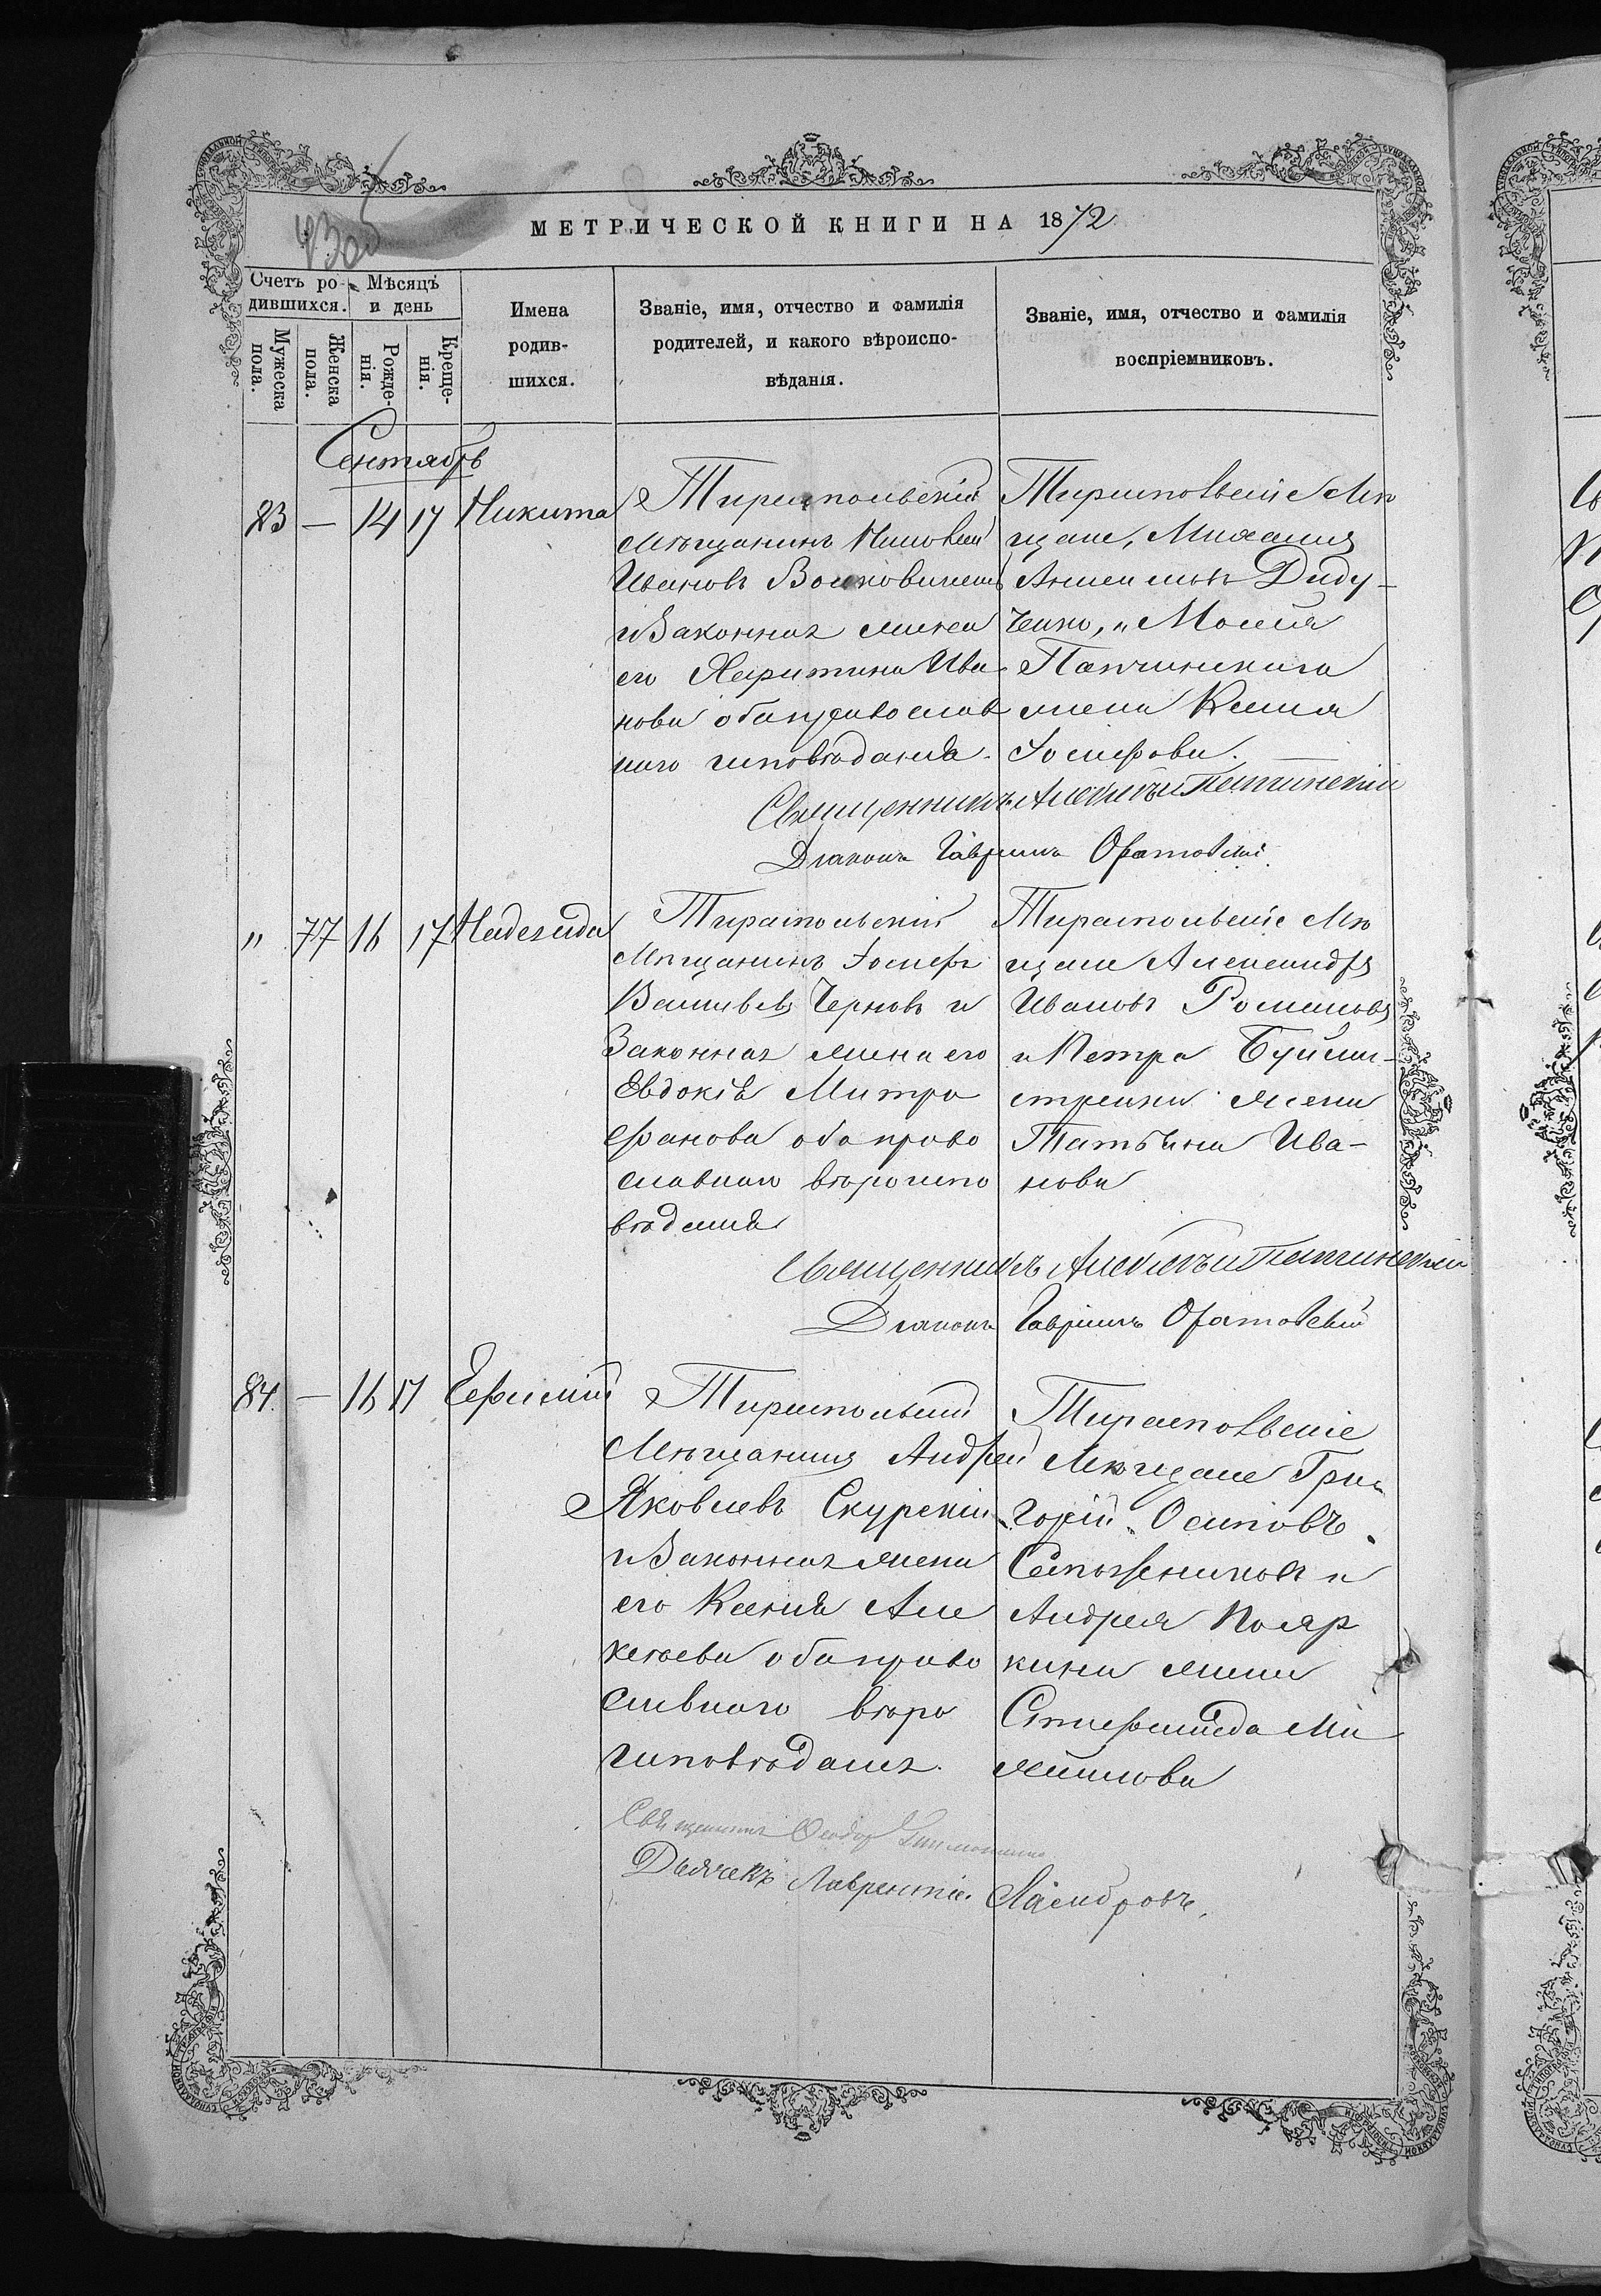 МЕТРИЧЕСКОЙ КНИГИ НА 1872
Счетъ ро-
дившихся.
Мѣсяцъ
и день
Мужеска
пола.
Женска
пола.
Рожде-
нія.
Креще-
нія.
Имена
родив-
шихся.
Званіе, имя, отчество и фамилія
родителей, и какого вѣроиспо-
вѣданія.
Званіе, имя, отчество и фамилія
воспріемниковъ.
Сентябрь
83 — 14 17 Никита
Тираспольскій
мѣщанинъ
Ивановъ
и законная жена
его Харитина Ива
нова оба православ
наго исповѣданія.
Тираспольскіе Мѣ
щане, Михаилъ
Диду-
ченко, и
Папчинскаго
жена Ксенія
Іосифова.
Священникъ Алексѣй Папчинскій
Діаконъ Гавріилъ Оратовскій
" 77 16 17 Надежда
Тираспольскій
Мѣщанинъ Іосифъ
Васильевъ Черновъ и
Законная жена его
Евдокія Митро
фанова оба право
славнаго вѣроиспо
вѣданія
Тираспольскіе Мѣ
щане Александръ
Ивановъ Романовъ
и Петра
жена
Татьяна Ива-
нова
Священникъ Алексѣй Папчинскій
Діаконъ Гавріилъ Оратовскій
84. — 16 17 Ефимій
Тираспольскій
Мѣщанинъ Андрей
Яковлевъ Скурскій
и Законная жена
его Ксенія Але
ксѣева оба право
славнаго вѣро
исповѣданія.
Тираспольскіе
Мѣщане Гри
горій Осиповъ
Сапожниковъ и
Андрея Пояр
кина жена
Стефанида Ми
хайлова
Священникъ Ѳеодоръ
Дьячекъ Лаврентій